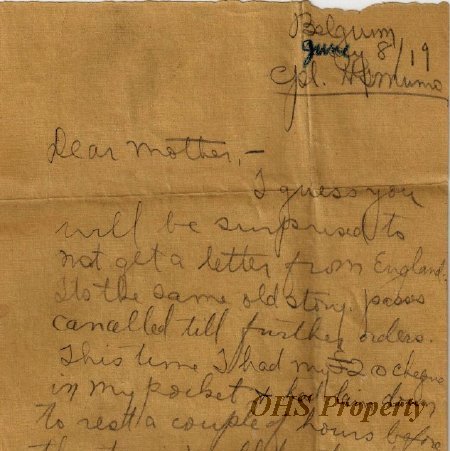 Belgium
June 8/19
Cpl. H Munro
Dear Mother,-
I guess you
will be surprised to
not get a letter from England.
Its the same old story. passes
cancelled till further orders.
This time I had my 20 cheque
in my pocket & had lain down
to rest a couple of hours before
OHS Property